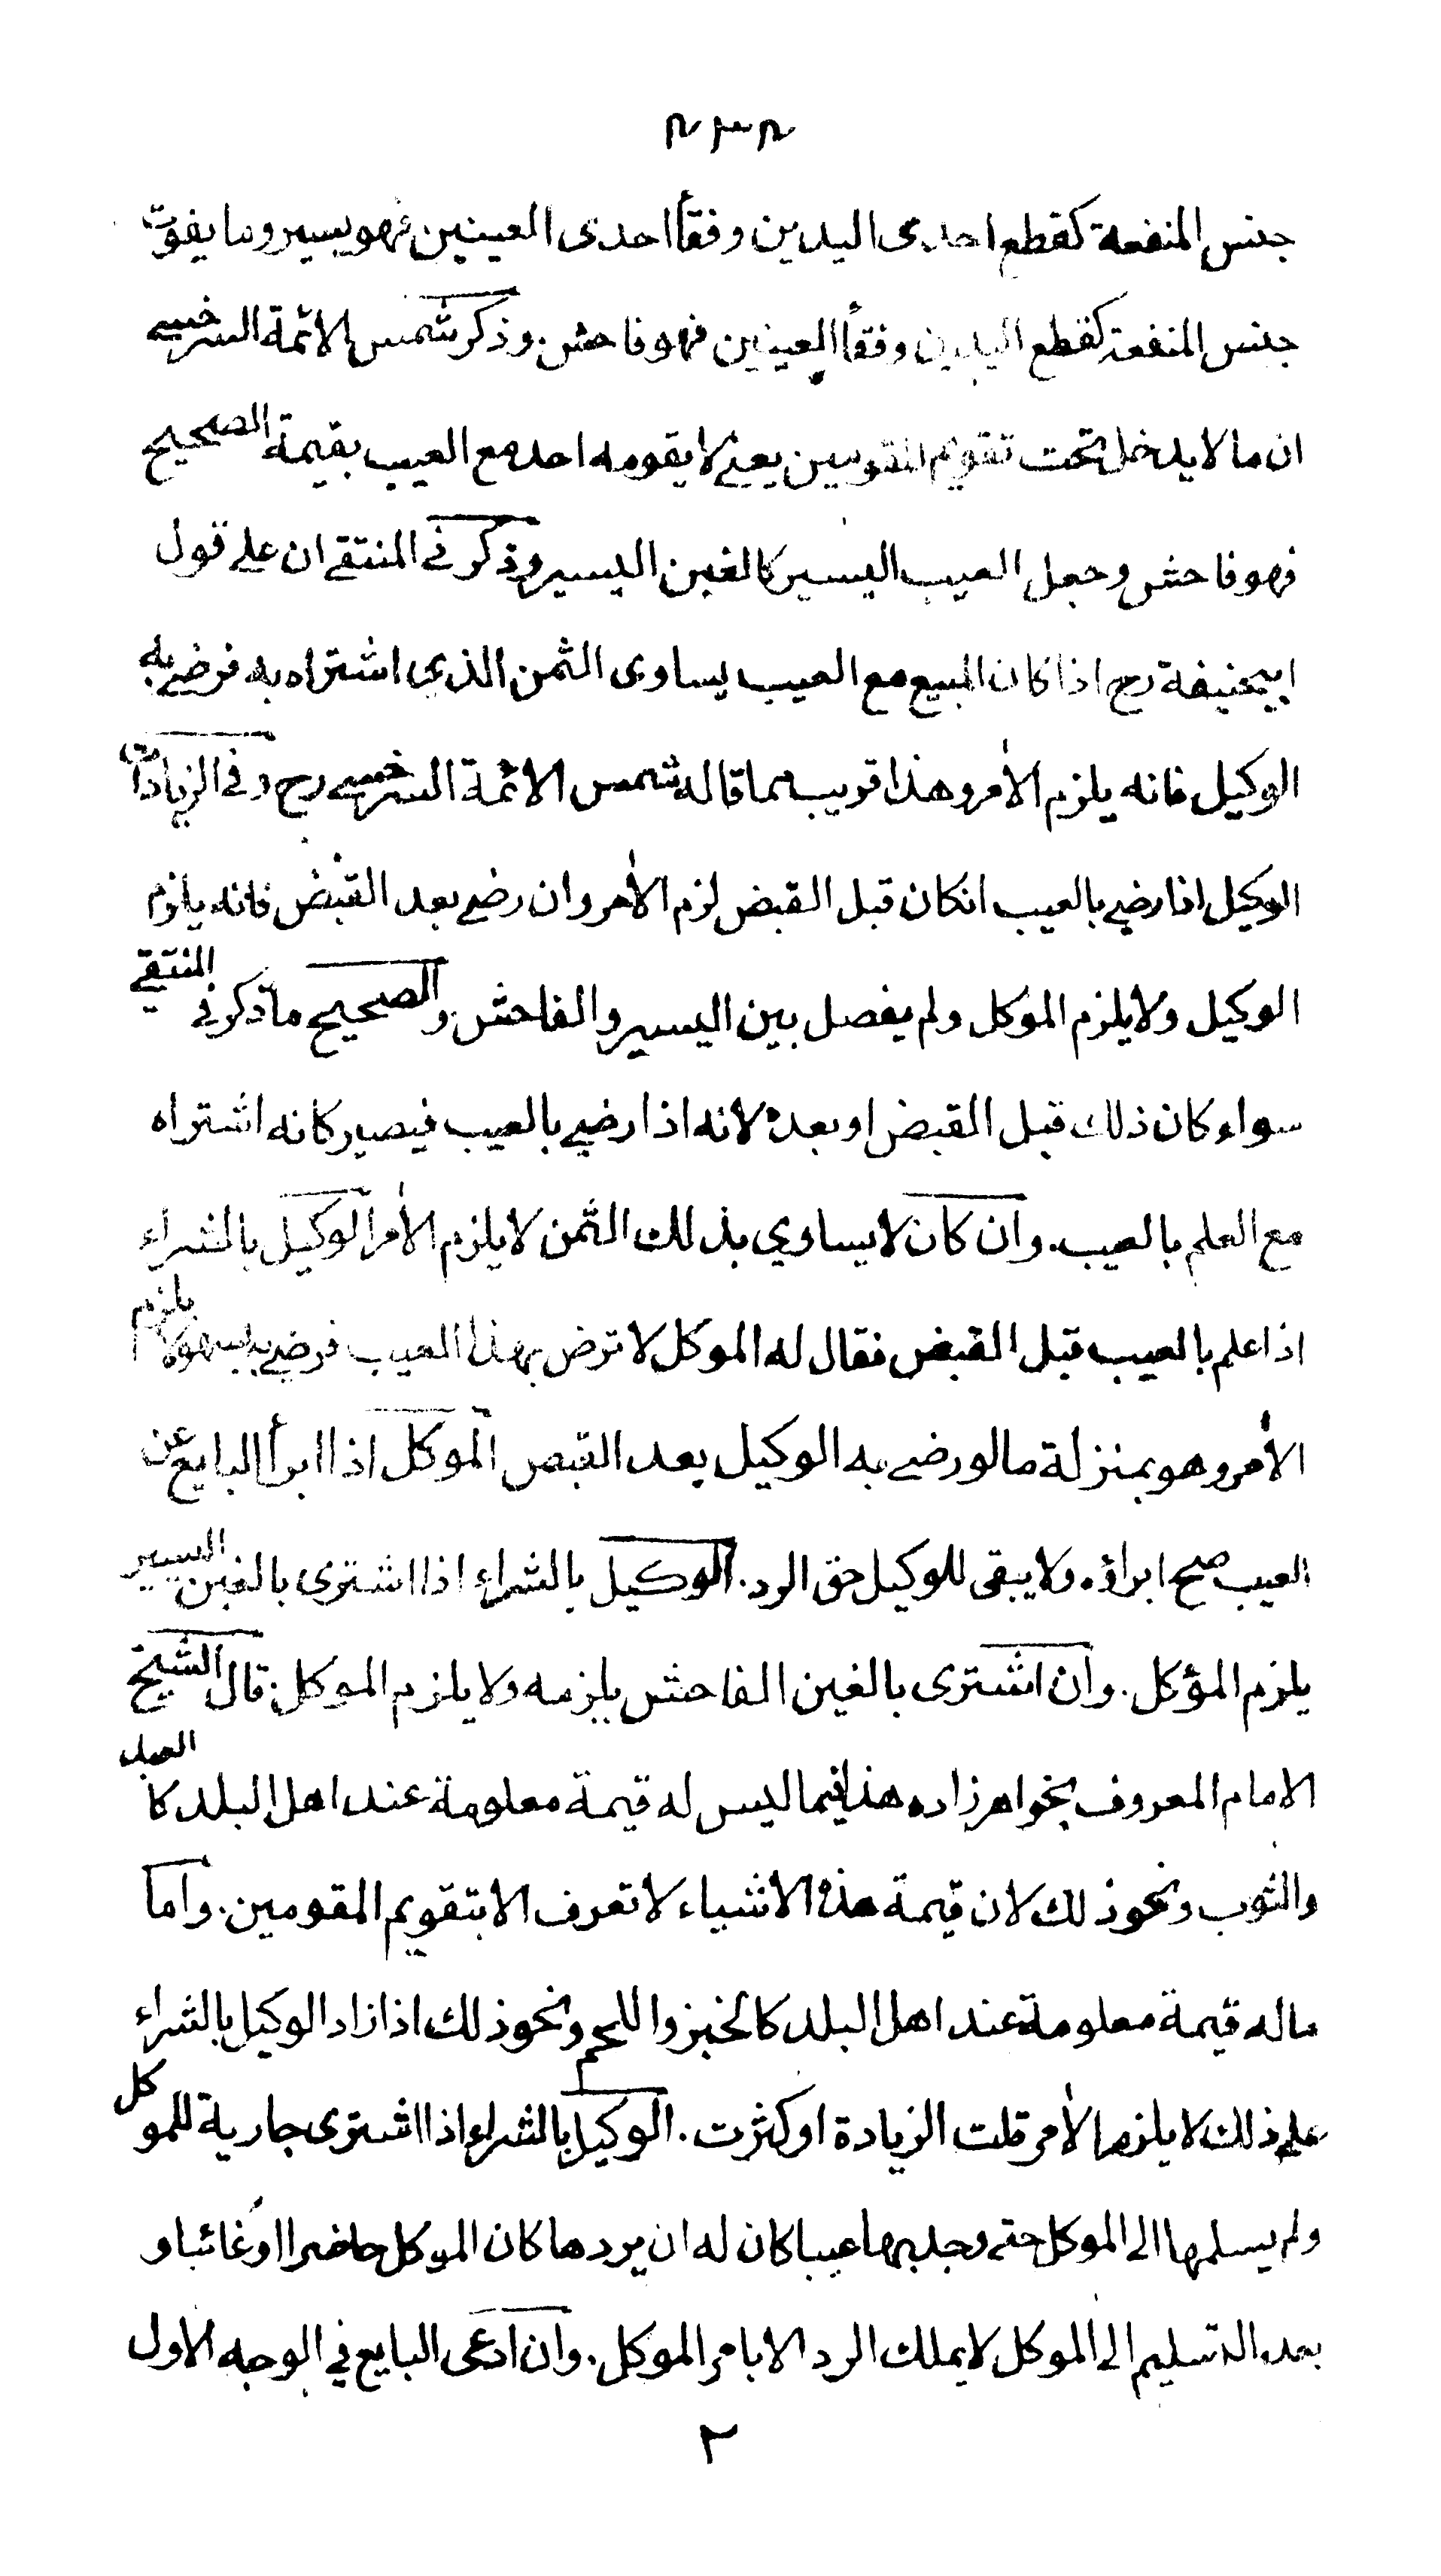 جنس المنفعة كقطع احدى اليدين وفقأ احدى العينين فهو يسير وما يفوت
جنس المنفعة كقطع اليدين وفقأ العينين فهو فاحش. وذكر شمس الائمة السرخسي
ان ما لا يدخل تحت تقويم المقومين يعني لا يقومه احد مع العيب بقيمة الصحيح
فهو فاحش وجعل العيب اليسير كالغبن اليسير وذكر في المنتقى ان على قول
ابيحنيفة رح اذا كان المبيع مع العيب يساوى الثمن الذي اشتراه به فرضي به
الوكيل فانه يلزم الأمر وهذا قريب مما قاله شمس الائمة السرخسي رح وفي الزيادات
الوكيل اذا رضي بالعيب انكان قبل القبض لزم الأمر وان رضي بعد القبض فانه يلزم
الوكيل ولا يلزم الموكل ولم يفصل بين اليسير والفاحش. والصحيح ما ذكر في المنتقي
سواء كان ذلك قبل القبض او بعده لانه اذا رضي بالعيب فيصير كانه اشتراه
مع العلم بالعيب. وان كان لا يساوي بذلك الثمن لا يلزم الأمر الوكيل بالشراء
اذا علم بالعيب قبل القبض فقال له الموكل لا ترض بهذا العيب فرضي به يلزم
الأمر وهو بمنزلة ما لو رضي به الوكيل بعد القبض الموكل اذا ابرأ البايع عن
العيب صح ابراؤه ولا يبقى للوكيل حق الرد. الوكيل بالشراء اذا اشترى بالغبن اليسير
يلزم المؤكل. وان اشترى بالغبن الفاحش يلزمه ولا يلزم الموكل. قال الشيخ
الامام المعروف بخواهر زاده هذا فيما ليس له قيمة معلومة عند اهل البلد كالعبد
والثوب ونحو ذلك لان قيمة هذه الاشياء لا تعرف الا بتقويم المقومين. واما
ماله قيمة معلومة عند اهل البلد كالخبز واللحم ونحو ذلك اذا زاد الوكيل بالشراء
على ذلك لا يلزم الأمر قلت الزيادة او كثرت. الوكيل بالشراء اذا اشترى جارية للموكل
ولم يسلمها الى الموكل حتى وجد بها عيبا كان له ان يردها كان الموكل حاضرا او غائبا و
بعد التسليم الى الموكل لا يملك الرد الا بامر الموكل. وان ادعى البايع في الوجه الاول
٢